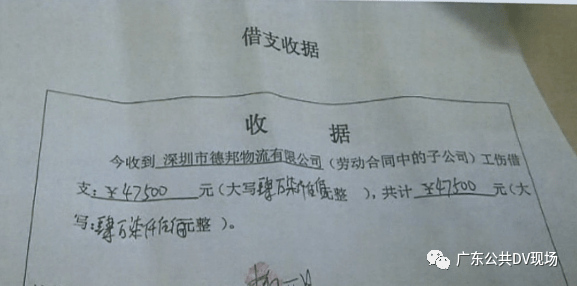 借支收据
收 据
今收到 深圳市德邦物流有限公司（劳动合同中的子公司）工伤借
支：￥47500 元（大写肆万柒仟伍佰元整 ），共计 ￥47500 元（大
写：肆万柒仟伍佰元整 ）。
广东公共DV现场